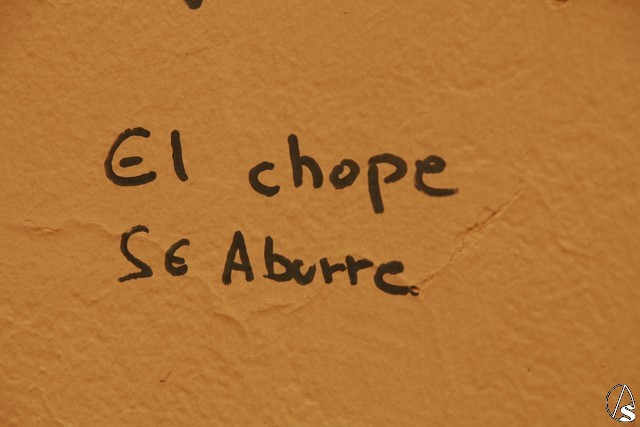 El chope
Se Aburre.